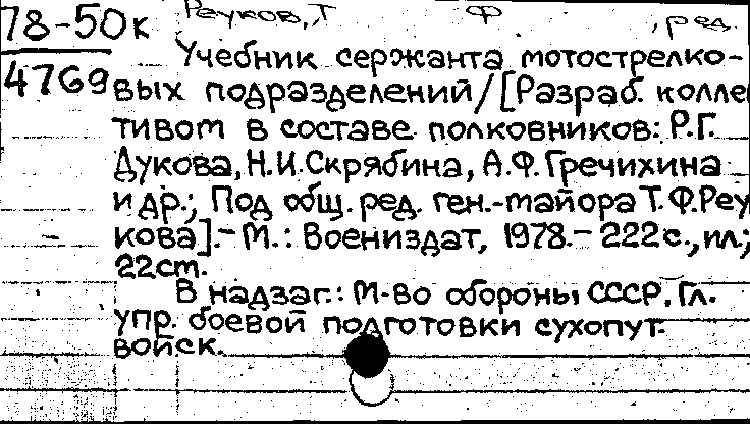 78-50к Реуков, Т Ф , ред.
4769
Учебник сержанта мотострелко-
вых подразделений/[Разраб. колле
тивом в составе полковников: Р.Г.
Дукова, Н.И. Скрябина, А.Ф. Гречихина
и др.; Под общ. ред. ген.-майора Т.Ф. Реу
кова].- М.: Воениздат, 1978.- 222с., ил.;
22 cm.
В надзаг.: М-во обороны СССР, Гл.
упр. боевой подготовки сухопут.
войск.